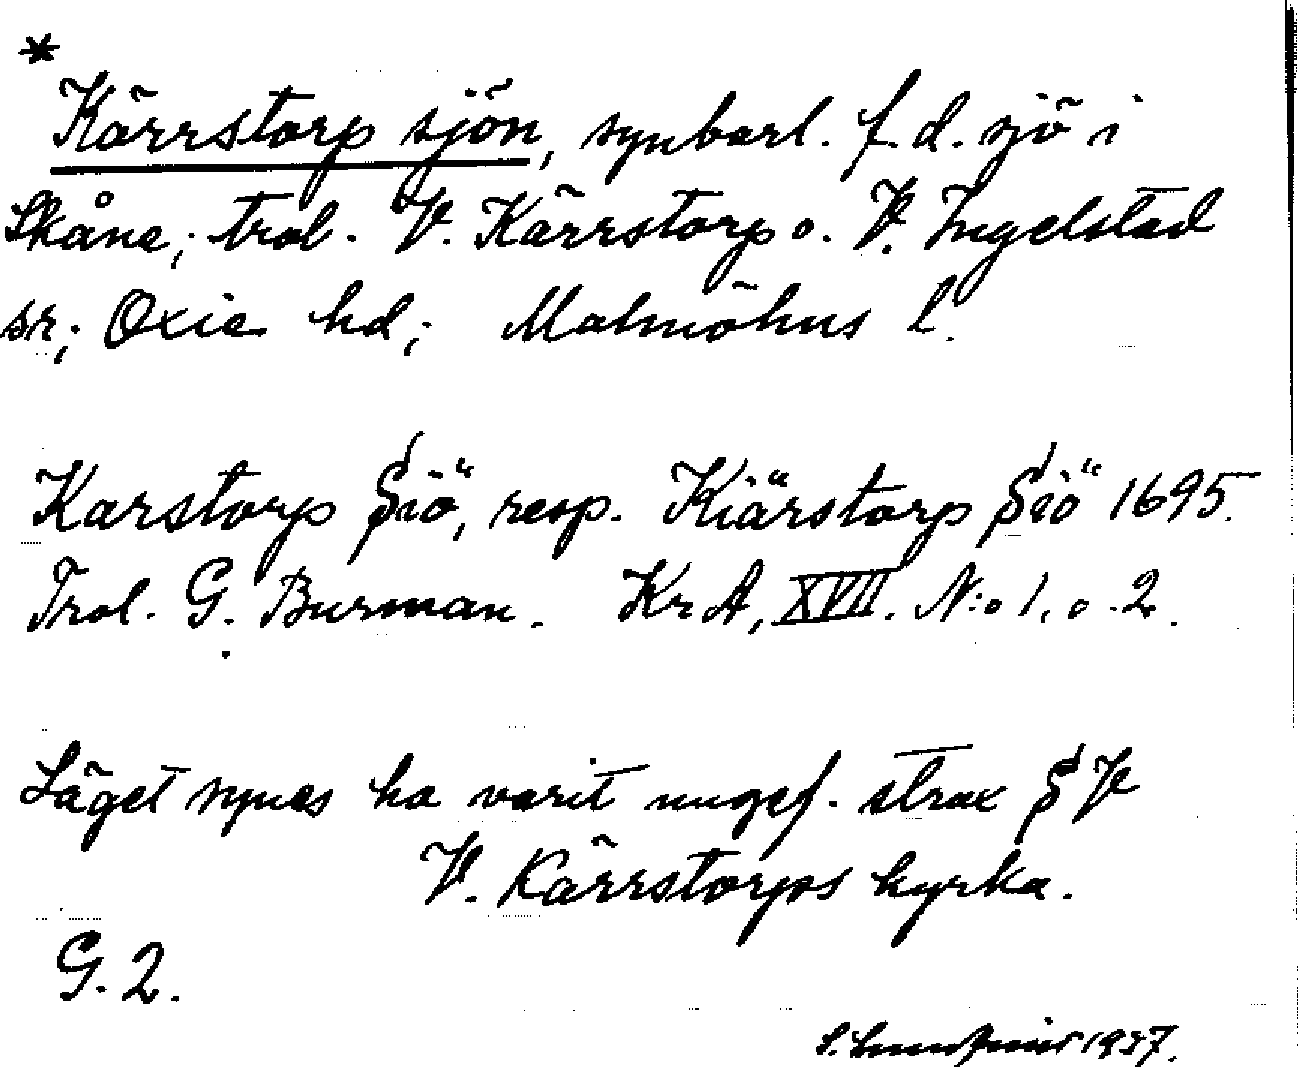 *
Kärrstorp sjön, synbarl. f.d. sjö i
Skåne; trol. V. Kärrstorp o. V. Ingelstad
sr; Oxie hd; Malmöhus l.
Karstorp Siö, resp. Kiärstorp Siö 1695.
Trol. G. Burman. KrA, XVII. N:o 1. o. 2.
Läget synes ha varit ungef. strax SV
V. Kärrstorps kyrka.
G. 2.
1937.